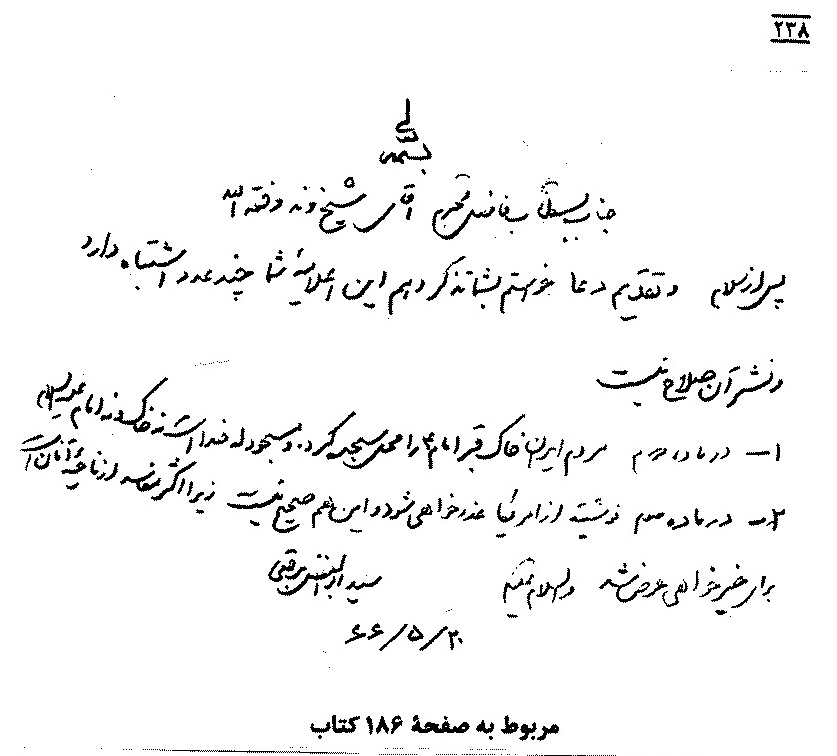 ۲۳۸
بسمه تعالی
جناب مستطاب فاضل محترم آقای شیخ وفقه الله
پس از سلام و تقدیم دعا خواستم بشما تذکر دهم این اعلامیهٔ شما چند عدد اشتباه دارد
و نشر آن صلاح نیست
۱- در ماده دوم مردم ایران خاک قبر امام را محل سجده کرده و مسجود له خدا است نه خاک و نه امام علیه السلام
۲- در ماده سوم نوشته از امریکا عذرخواهی شود و این هم صحیح نیست زیرا اکثر مفاسد از ناحیهٔ آنان است
برای خیرخواهی عرض شد والسلام علیکم
سید ابوالفضل برقعی
۶۶/۵/۲۰
مربوط به صفحهٔ ۱۸۶ کتاب